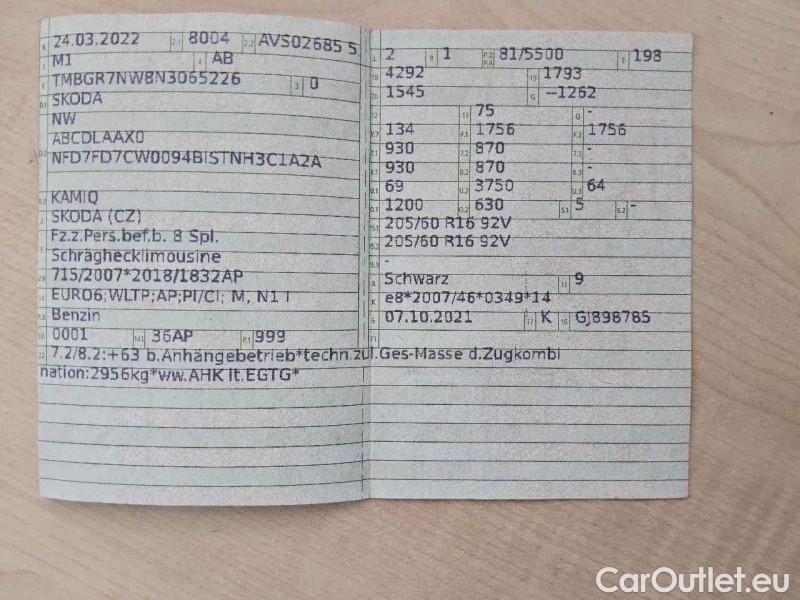 24.03.2022 2.1 8004 2.2 AVS02685 5
M1 4 AB
TMBGR7NW8N3065226 3 0
SKODA
NW
ABCDLAAX0
NFD7FD7CW0094BISTNH3C1A2A
KAMIQ
SKODA (CZ)
Fz.z.Pers.bef.b. 8 Spl.
Schräghecklimousine
715/2007*2018/1832AP
EURO6;WLTP;AP;PI/CI; M, N1 I
Benzin
0001 36AP P.1 999
7.2/8.2:+63 b.Anhängebetrieb*techn.zul.Ges-Masse d.Zugkombi
nation:2956kg*ww.AHK lt.EGTG*
2 9 1 P.2 P.4 81/5500 T 198
18 4292 19 1793
20 1545 G --1262
13 75 Q -
134 F.1 1756 F.2 1756
7.1 930 7.2 870 7.3 -
8.1 930 8.2 870 8.3 -
U.1 69 U.2 3750 U.3 64
O.1 1200 O.2 630 S.1 5 S.2 -
205/60 R16 92V
205/60 R16 92V
-
R Schwarz 11 9
K e8*2007/46*0349*14
6 07.10.2021 17 K 16 GJ898785
21
CarOutlet.eu